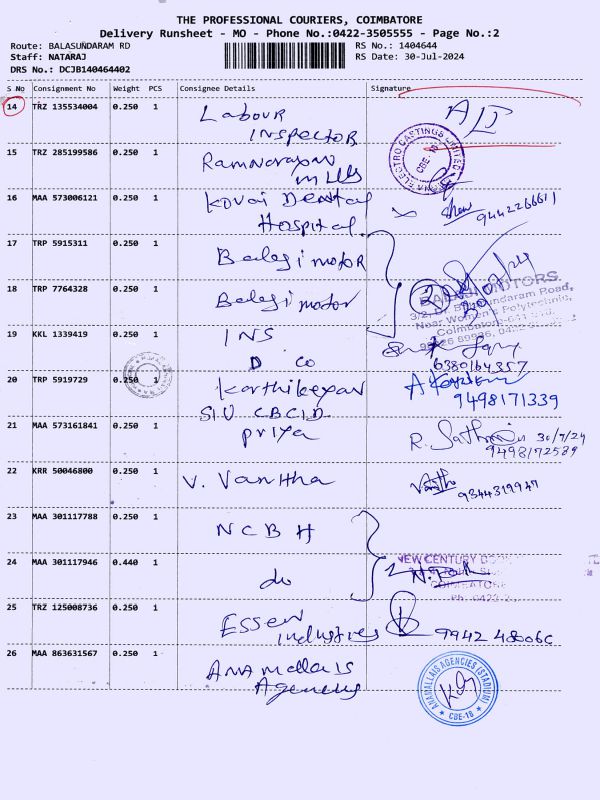 THE PROFESSIONAL COURIERS, COIMBATORE
Delivery Runsheet - MO - Phone No.:0422-3505555 - Page No.:2
Route: BALASUNDARAM RD
RS No.: 1404644
Staff: NATARAJ
RS Date: 30-Jul-2024
DRS No.: DCJB140464402
S No Consignment No Weight PCS Consignee Details Signature
14 TRZ 135534004 0.250 1 Labour
Inspector
15 TRZ 285199586 0.250 1 Ramnarayan
mills
ELECTRO CASTINGS LIMITED
CBE-18
16 MAA 573006121 0.250 1 Kovai Dental
Hospital
9442266611
17 TRP 5915311 0.250 1 Balaji motor
18 TRP 7764328 0.250 1 Balaji motor
BALAJI MOTORS
3/2, Dr. Balasundaram Road,
Near Women's Polytechnic,
19 KKL 1339419 0.250 1 INS
D Co
6380164357
20 TRP 5919729 0.250 1 Karthikeyan
SIU CBCID
9498171339
21 MAA 573161841 0.250 1 Priya
R. Sathri 30/7/24
9498172589
22 KRR 50046800 0.250 1 V. Vanitha
9344319947
23 MAA 301117788 0.250 1 NCBH
24 MAA 301117946 0.440 1 do
2
NEW CENTURY
COIMBATORE
25 TRZ 125008736 0.250 1 Essen
industries
9942 48006
26 MAA 863631567 0.250 1 Anamallais
Agency
ANAMALLAIS AGENCIES (STADIUM)
CBE-18